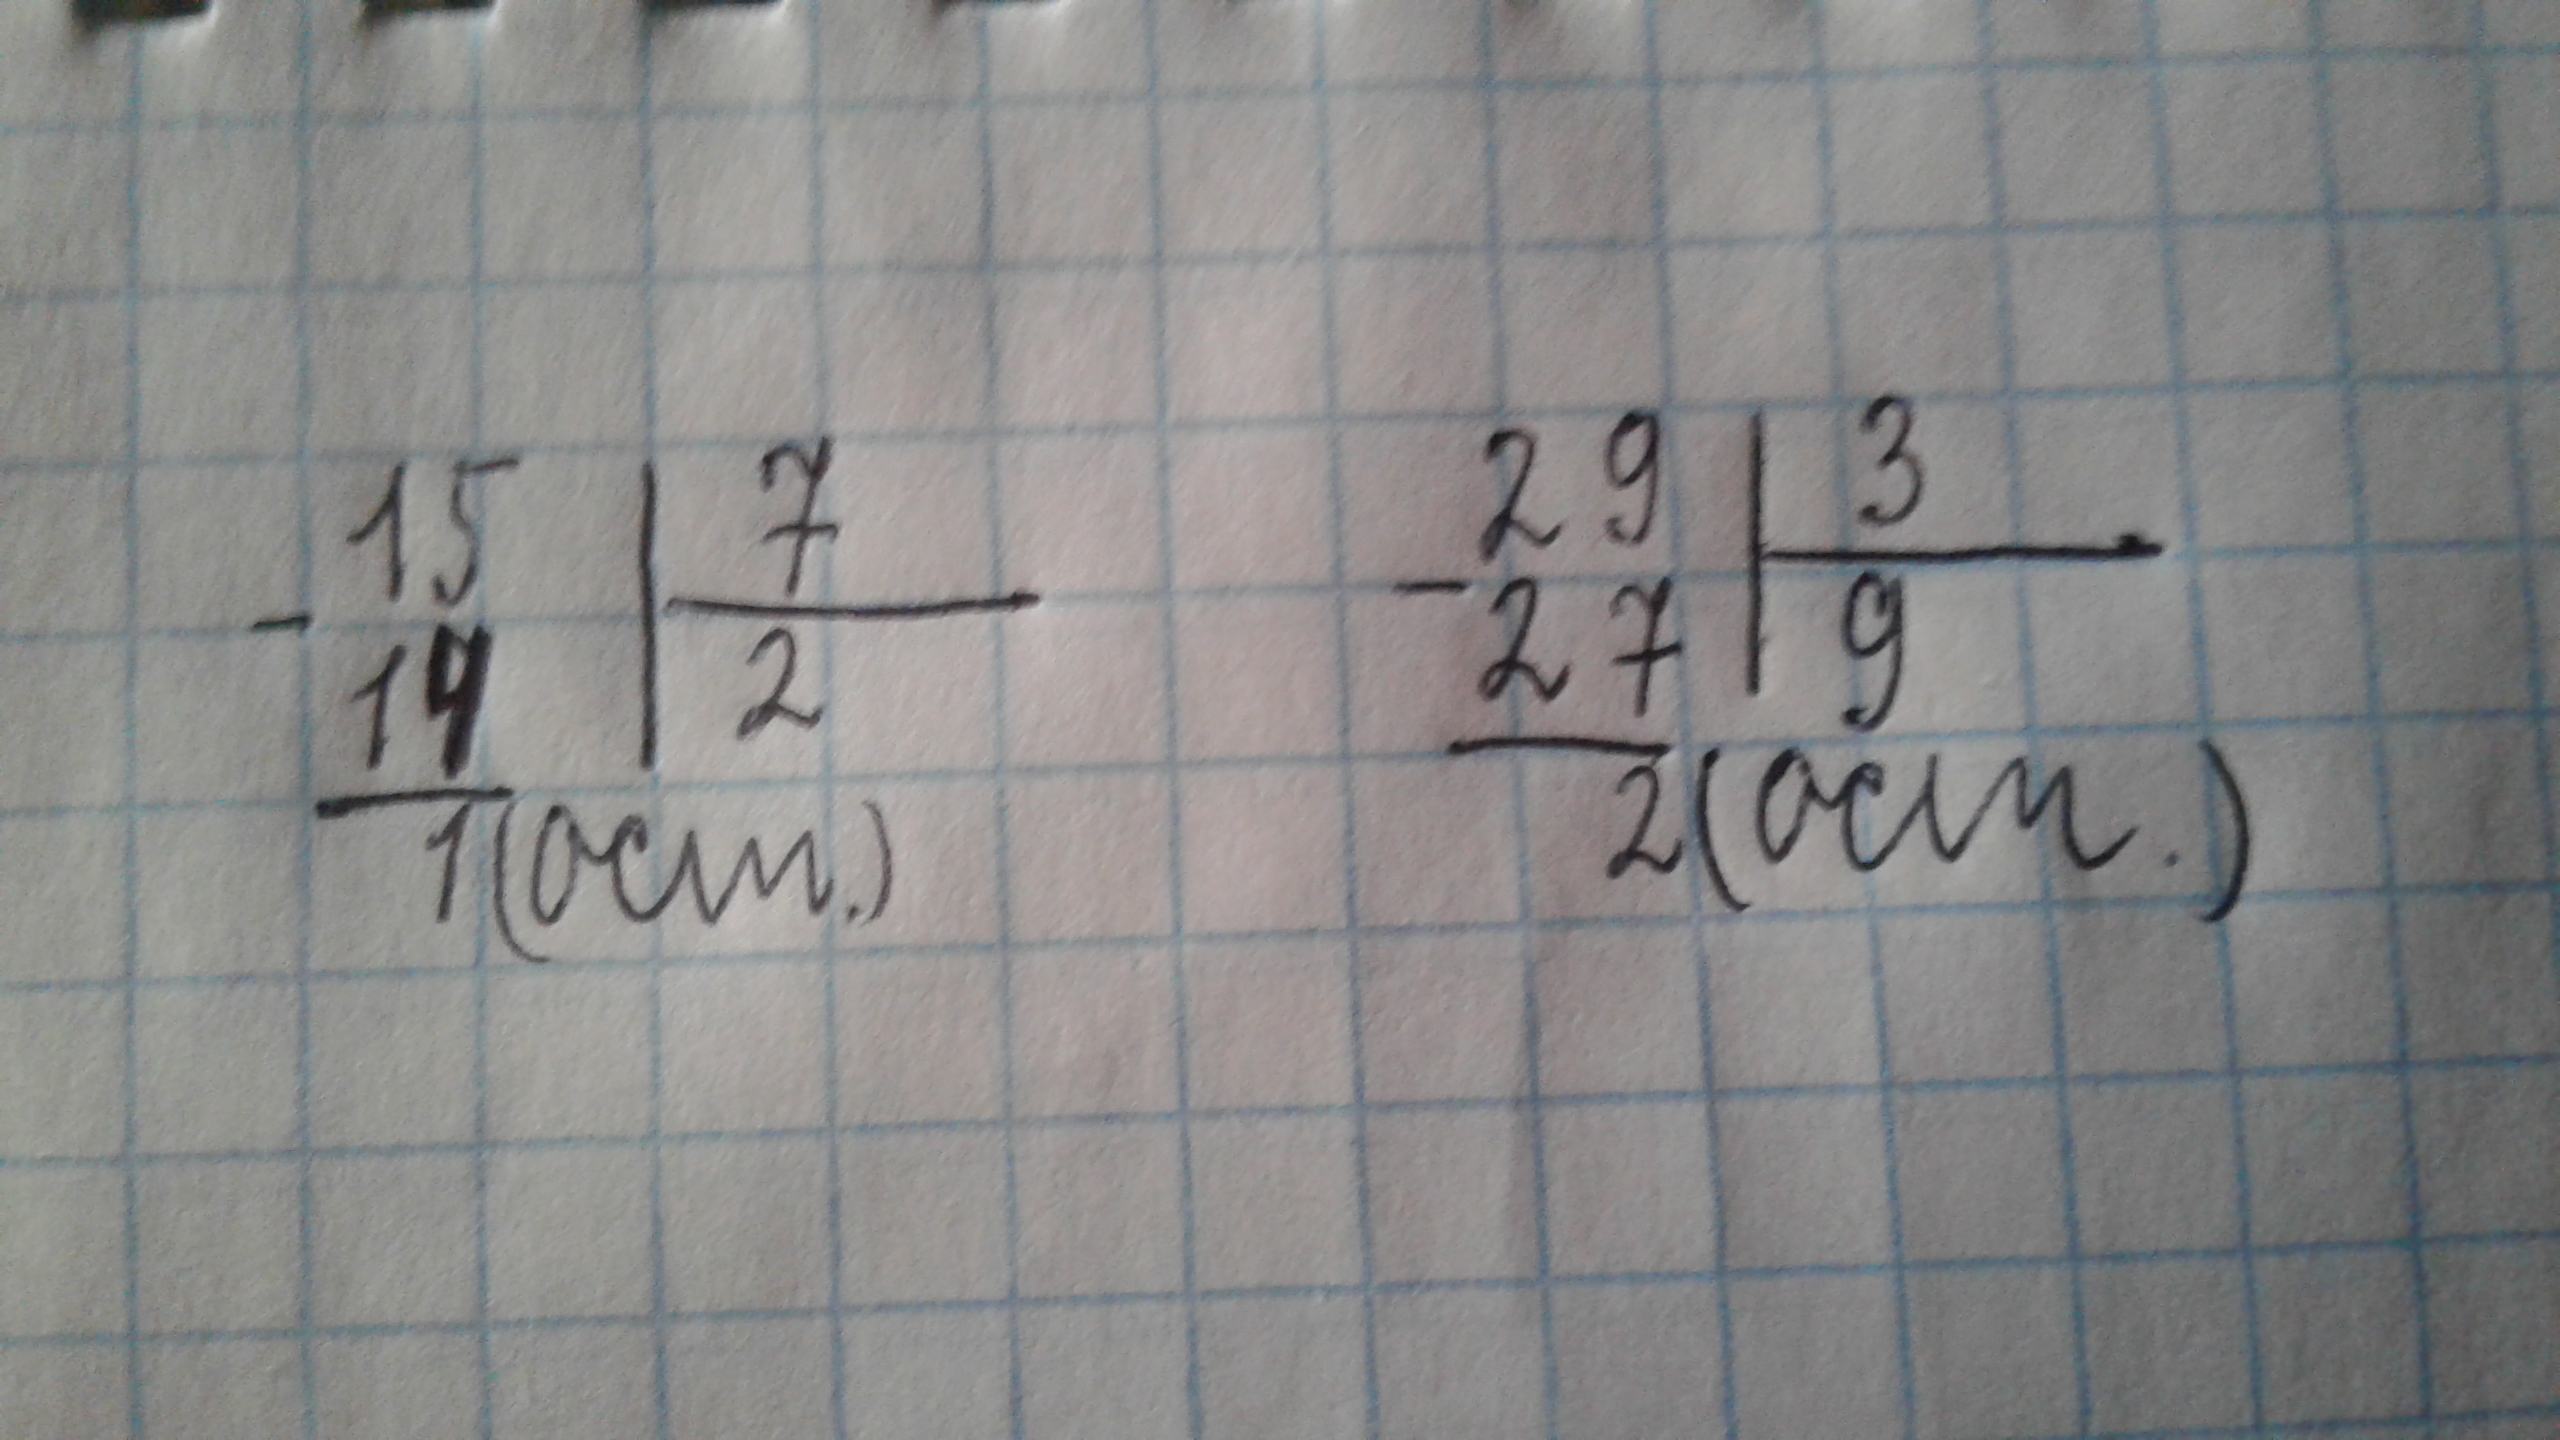 15 | 7
- 14 | 2
1 (ост.)
29 | 3
- 27 | 9
2 (ост.)